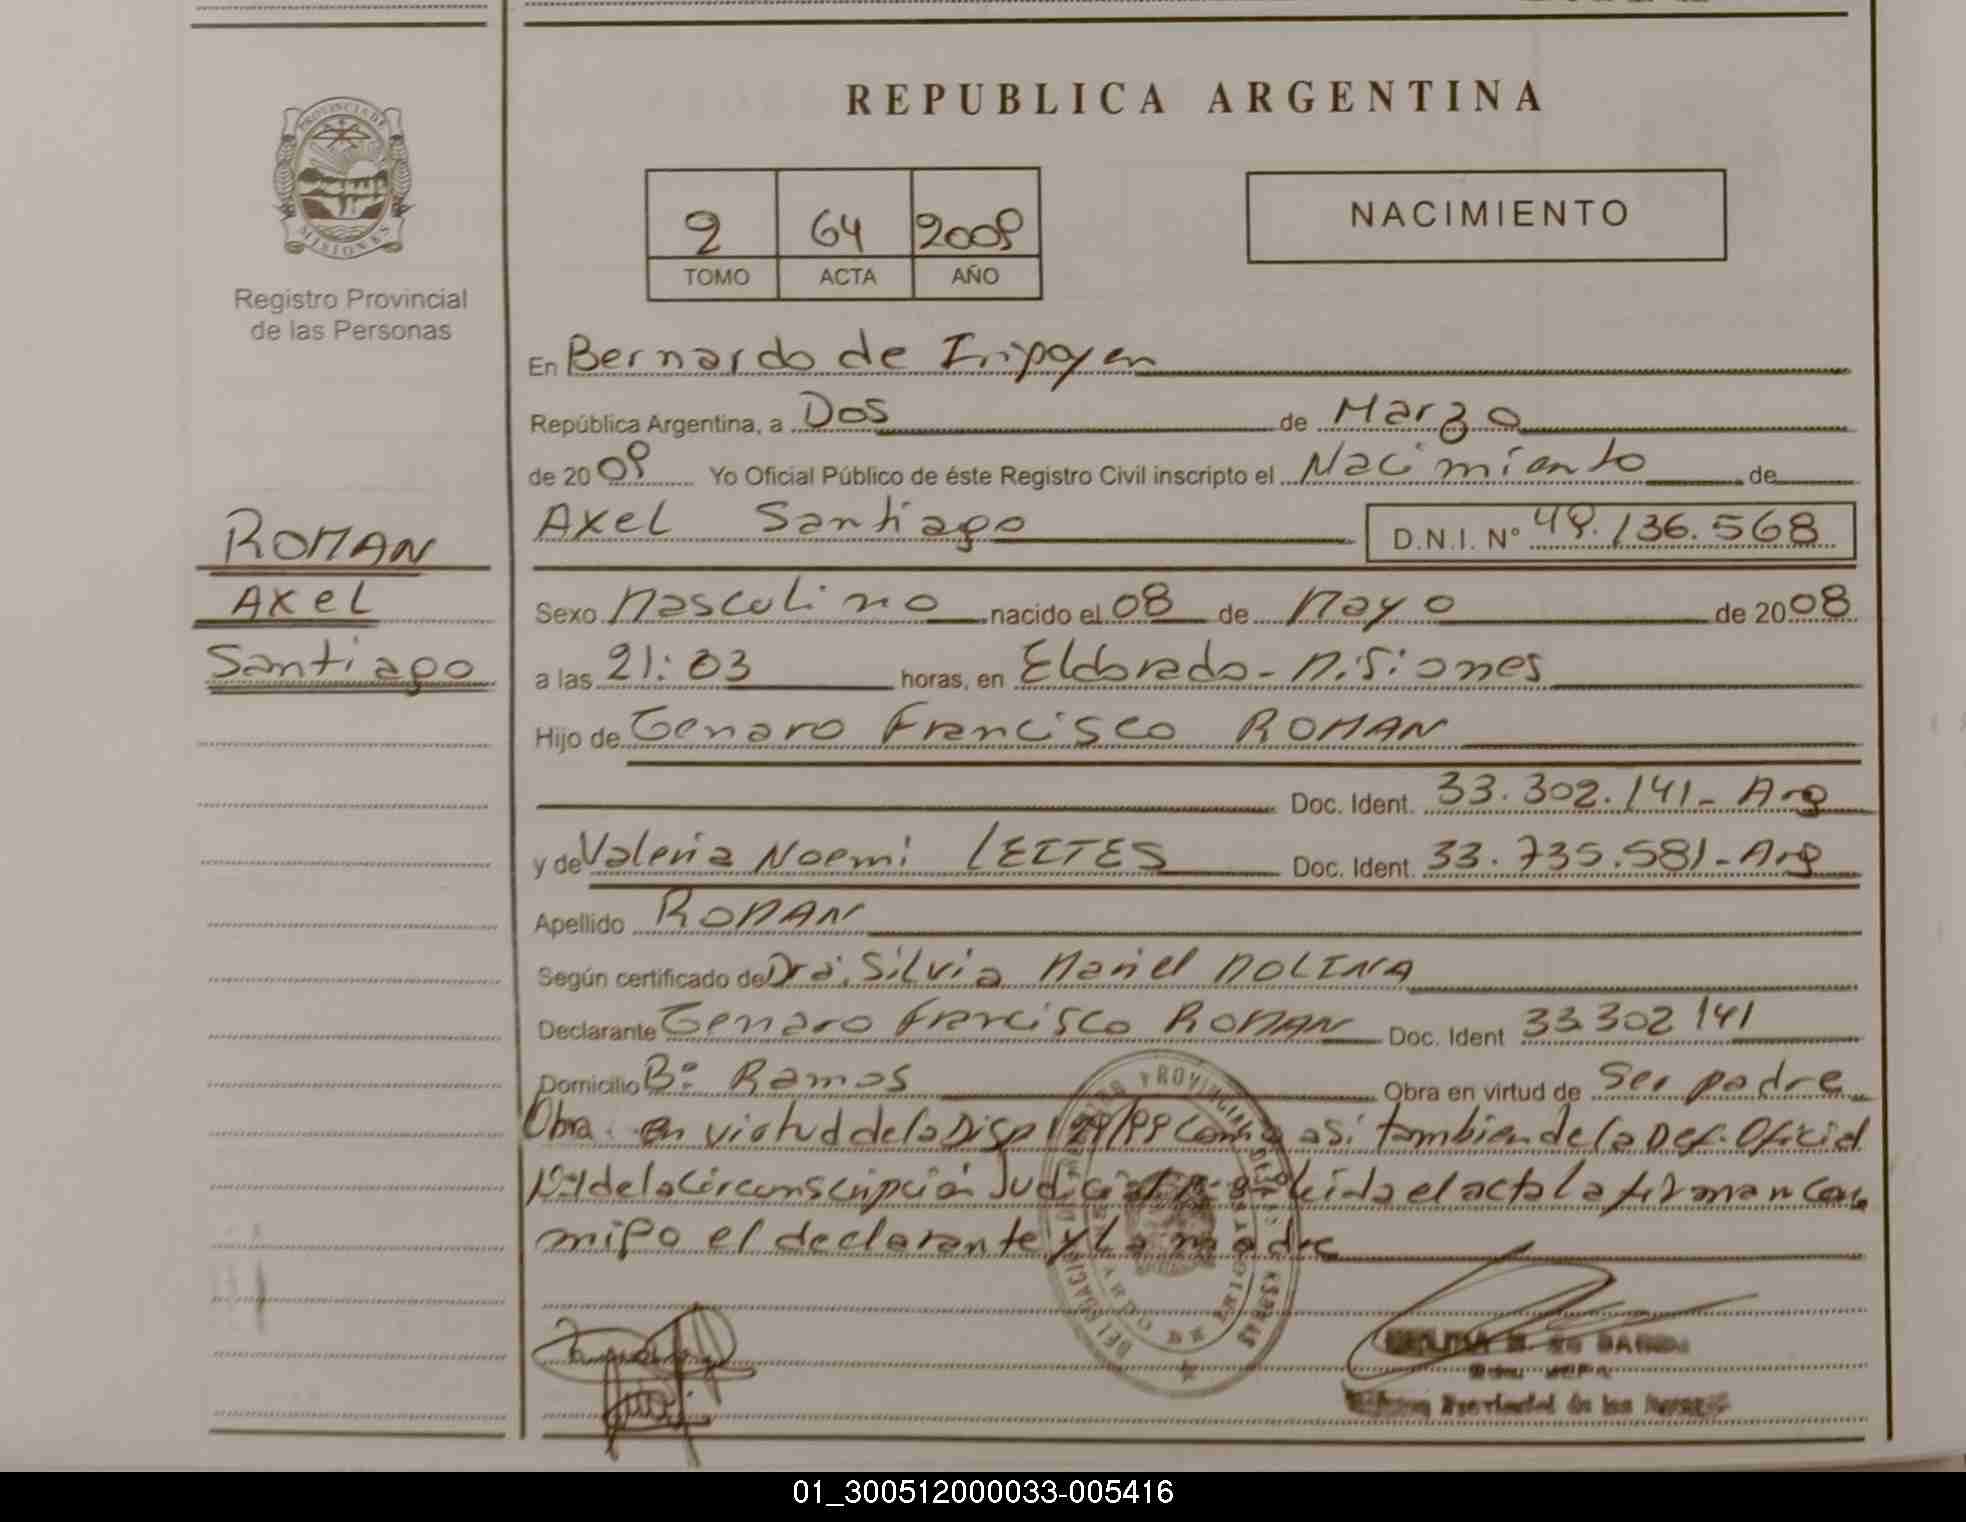 PROVINCIA DE
MISIONES
Registro Provincial
de las Personas
ROMAN
Axel
Santiago
REPUBLICA ARGENTINA
2 64 2009
TOMO ACTA AÑO
NACIMIENTO
En Bernardo de Irigoyen
República Argentina, a Dos de Marzo
de 20 09 Yo Oficial Público de éste Registro Civil inscripto el Nacimiento de
Axel Santiago D.N.I. Nº 49.136.568
Sexo Masculino nacido el 08 de Mayo de 20 08
a las 21:03 horas, en Eldorado - Misiones
Hijo de Genaro Francisco ROMAN
Doc. Ident. 33.302.141 - Arg
y de Valeria Noemi LEITES Doc. Ident. 33.735.581 - Arg
Apellido ROMAN
Según certificado de Dra. Silvia Mariel MOLINA
Declarante Genaro Francisco ROMAN Doc. Ident 33302141
Domicilio Bº Ramos Obra en virtud de Ser padre
Obra en virtud de la Disp como asi tambien de la Def. Oficial
de la Circunscripción Judicial leida el acta la firman con
migo el declarante y La madre
Provincial de las
01_300512000033-005416